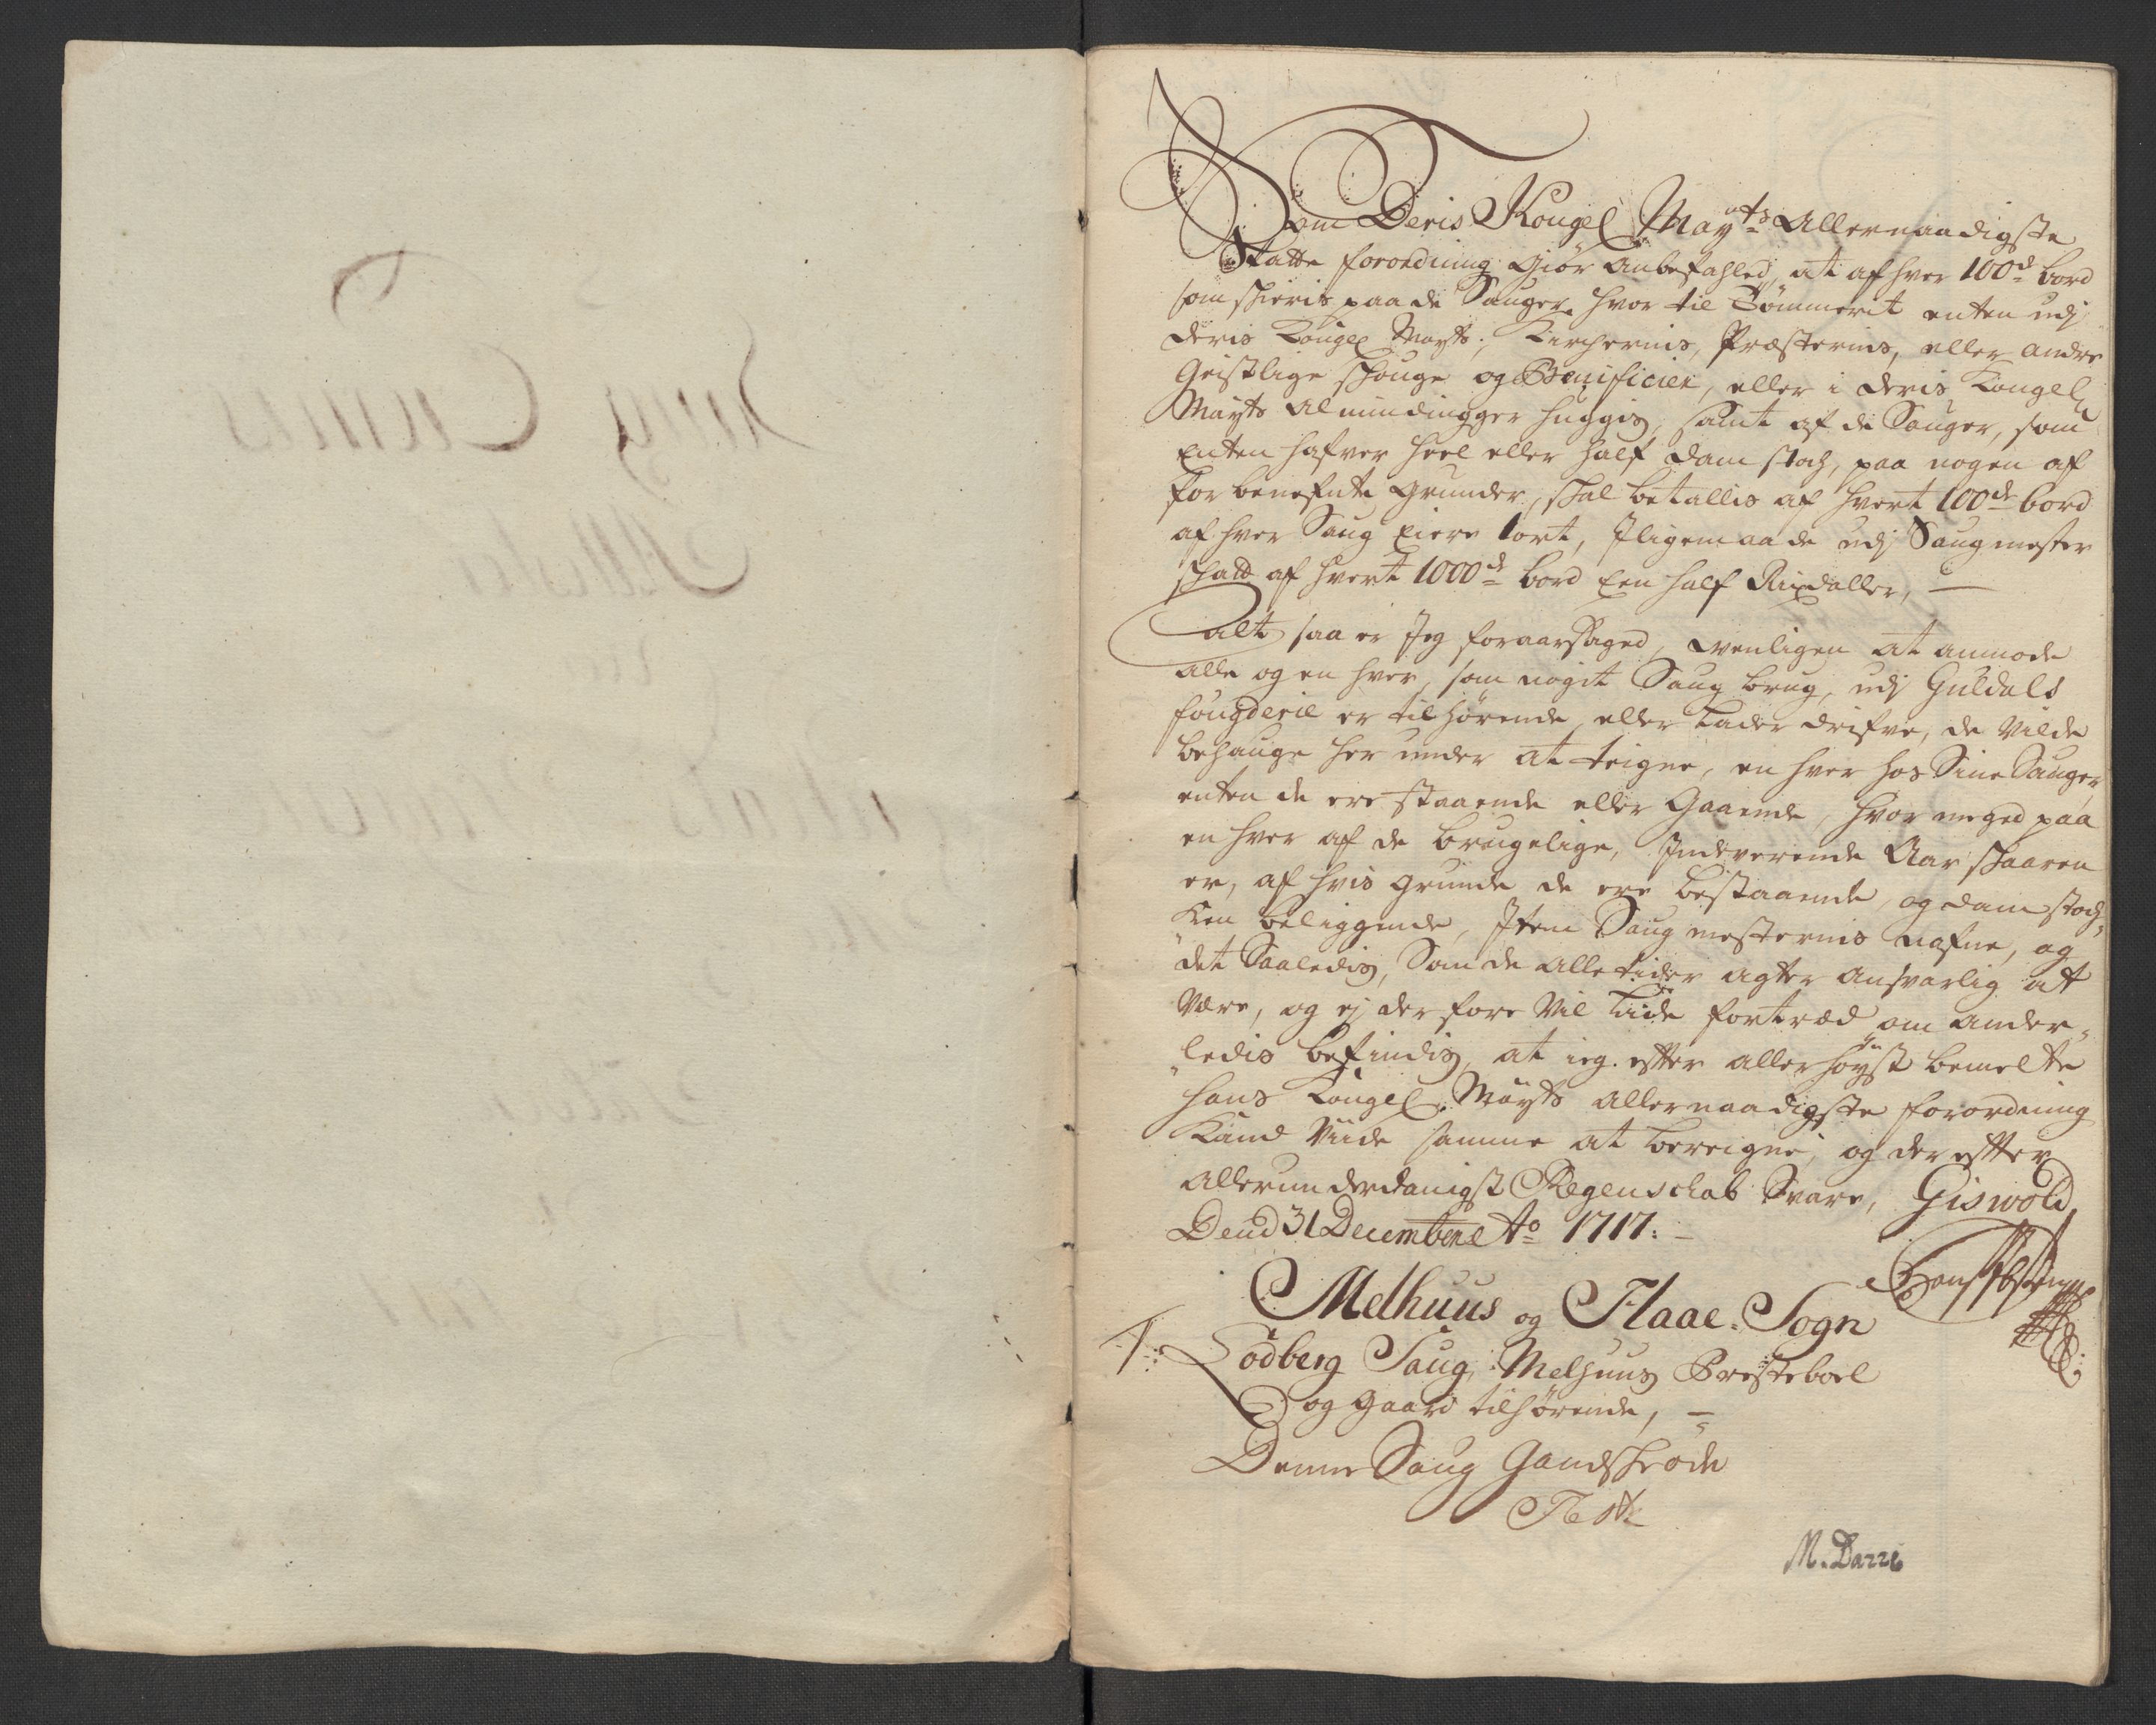 Som Deris Kongel Mayts Allernaadigste
Skatte forordning giør anbefahled, at af hver 100de bord
som skieris paa de Sauger, hvor til Tømmerit enten udj
deris Kongel Mayts, Kirchernis, Præsternis, eller andre
Geistlige skouge og Benificier, eller i deris Kongel
Mayts Almindingger huggis, samt af de Sauger, som
Enten hafver heel eller half dam stoch, paa nogen af
for benefnte grunder, skal betallis af hvert 100de bord
af hver Saug Eiere 1 ort, Jligemaade udj Saugmester
skatt af hvert 1000de bord Een half Rixdaller, —
Alt saa er Jeg foraarsaged, venligen at anmode
alle og en hver, som nogit Saug brug, udj Guldals
fougderie er tilhørende, eller Lader drifve, de vilde
behauge her under at teigne, en hver hos Sine Sauger,
enten de ere staaende eller Gaaende, hvor meged paa
en hver af de brugelige, Jndeverende Aar skaaren
er, af hvis grunde de ere bestaaende, og dam stoch¬
Ken beliggende, Jtem Saug mesternis nafne, og
det Saaledis, Som de alletider agter ansvarlig at
være, og ej derfore vil Liide fortræd om ander¬
ledis befindis, at ieg efter allerhøyst bemelte
hans Kongel. Mayts allernaadigste forordning
Kand viide samme at bereigne, og derefter
allerunderdanigst Regenschab Svare, Giswold
Dend 31 Decembene Ao 1717: —
Melhuus og Flaae Sogn
1: Lødberg Saug, Melhuus Presteboel
og gaard tilhørende, —
Denne Saug Gandsk øde
Test
M. Darre